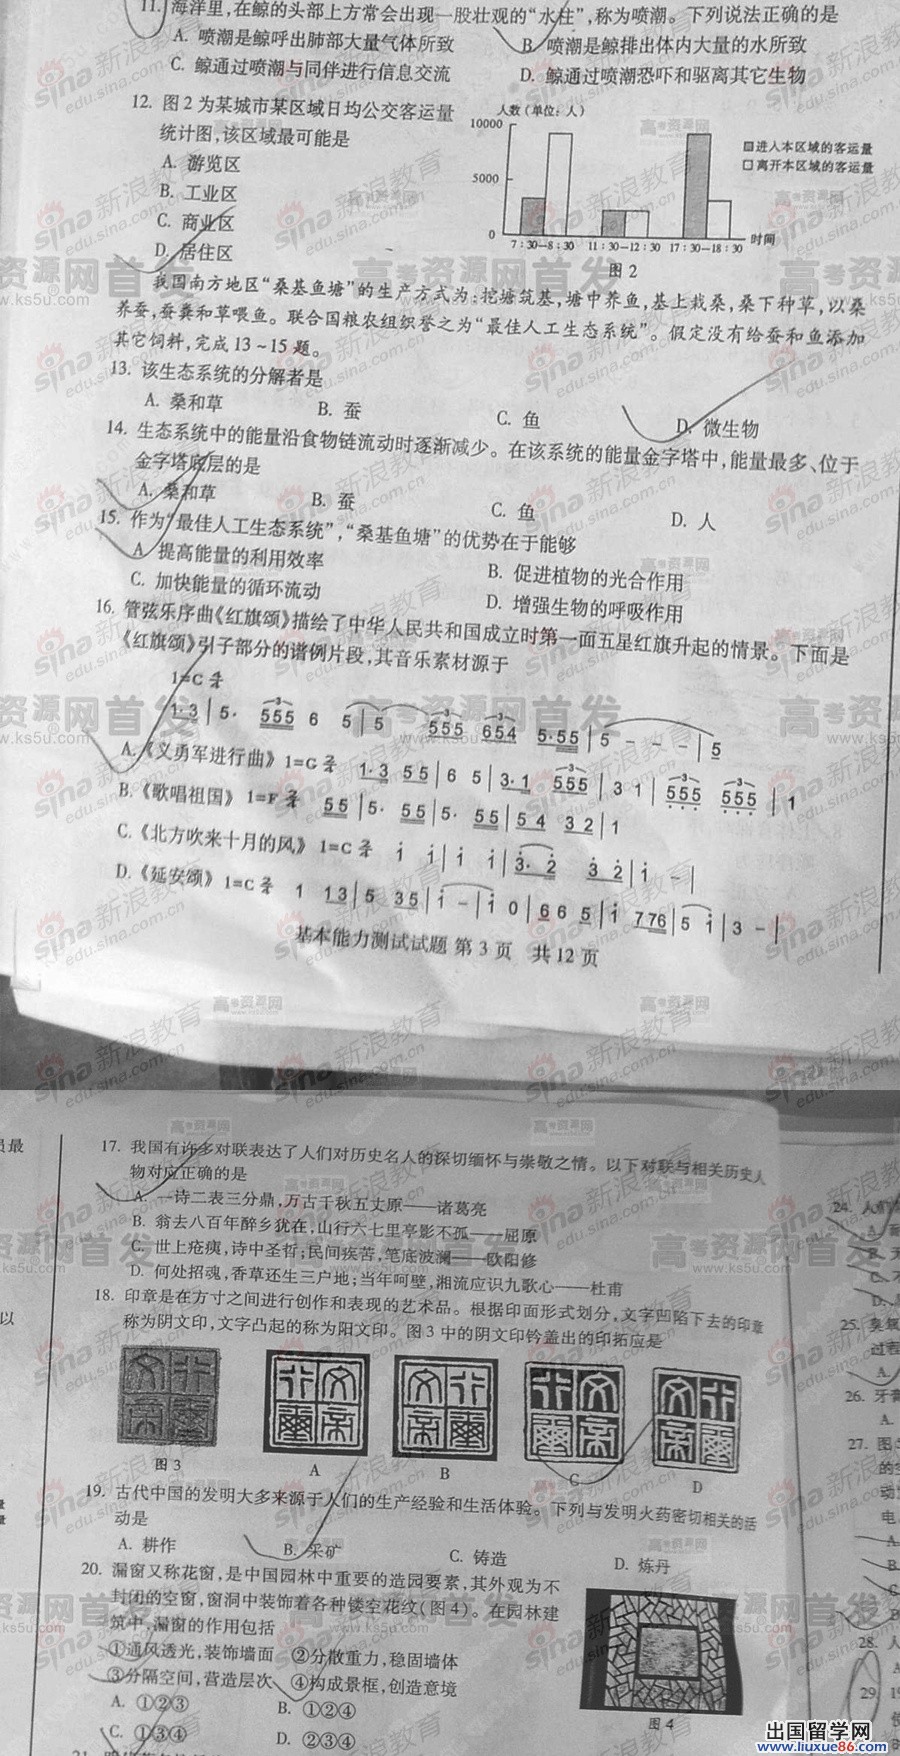 11. 海洋里,在鲸的头部上方常会出现一股壮观的“水柱”,称为喷潮。下列说法正确的是
A. 喷潮是鲸呼出肺部大量气体所致
B. 喷潮是鲸排出体内大量的水所致
C. 鲸通过喷潮与同伴进行信息交流
D. 鲸通过喷潮恐吓和驱离其它生物
12. 图2为某城市某区域日均公交客运量
统计图,该区域最可能是
A. 游览区
B. 工业区
C. 商业区
D. 居住区
人数(单位:人)
10000
5000
0
7:30—8:30 11:30—12:30 17:30—18:30 时间
进入本区域的客运量
离开本区域的客运量
图2
我国南方地区“桑基鱼塘”的生产方式为:挖塘筑基,塘中养鱼,基上栽桑,桑下种草,以桑
养蚕,蚕粪和草喂鱼。联合国粮农组织誉之为“最佳人工生态系统”。假定没有给蚕和鱼添加
其它饲料,完成13~15题。
13. 该生态系统的分解者是
A. 桑和草 B. 蚕 C. 鱼 D. 微生物
14. 生态系统中的能量沿食物链流动时逐渐减少。在该系统的能量金字塔中,能量最多、位于
金字塔底层的是
A. 桑和草 B. 蚕 C. 鱼 D. 人
15. 作为“最佳人工生态系统”,“桑基鱼塘”的优势在于能够
A 提高能量的利用效率
B. 促进植物的光合作用
C. 加快能量的循环流动
D. 增强生物的呼吸作用
16. 管弦乐序曲《红旗颂》描绘了中华人民共和国成立时第一面五星红旗升起的情景。下面是
《红旗颂》引子部分的谱例片段,其音乐素材源于
1=C
1·3 | 5· 555 6 5 | 5 555 654 5·55 | 5 - - - | 5
A.《义勇军进行曲》1=G 2/4 1·3 55 | 6 5 | 3·1 555 | 3 1 | 555 555 | 1
B.《歌唱祖国》1=F 2/4 55 | 5· 55 | 5· 55 | 54 32 | 1
C.《北方吹来十月的风》1=C 2/4 1 1 | 1 1 | 3·2 32 | 1 - |
D.《延安颂》1=C 2/4 1 13 | 5 35 | 1 - | 1 0 | 66 5 | 1 776 | 5 1 | 3 - |
基本能力测试试题 第3页 共12页
17. 我国有许多对联表达了人们对历史名人的深切缅怀与崇敬之情。以下对联与相关历史人
物对应正确的是
A. 一诗二表三分鼎,万古千秋五丈原——诸葛亮
B. 翁去八百年醉乡犹在,山行六七里亭影不孤——屈原
C. 世上疮痍,诗中圣哲;民间疾苦,笔底波澜——欧阳修
D. 何处招魂,香草还生三户地;当年呵壁,湘流应识九歌心——杜甫
18. 印章是在方寸之间进行创作和表现的艺术品。根据印面形式划分,文字凹陷下去的印章
称为阴文印,文字凸起的称为阳文印。图3中的阴文印钤盖出的印拓应是
图3 A B C D
19. 古代中国的发明大多来源于人们的生产经验和生活体验。下列与发明火药密切相关的活
动是
A. 耕作 B. 采矿 C. 铸造 D. 炼丹
20. 漏窗又称花窗,是中国园林中重要的造园要素,其外观为不
封闭的空窗,窗洞中装饰着各种镂空花纹(图4)。在园林建
筑中,漏窗的作用包括
①通风透光,装饰墙面 ②分散重力,稳固墙体
③分隔空间,营造层次 ④构成景框,创造意境
A. ①②③ B. ①②④
C. ①③④ D. ②③④
图4
24. 人们
25. 臭氧
过程
A.
26. 牙膏
A.
27. 图
的
动
电
28. 人
29. 19
高考资源网首发
www.ks5u.com
sina新浪教育
edu.sina.com.cn
出国留学网
www.liuxue86.com